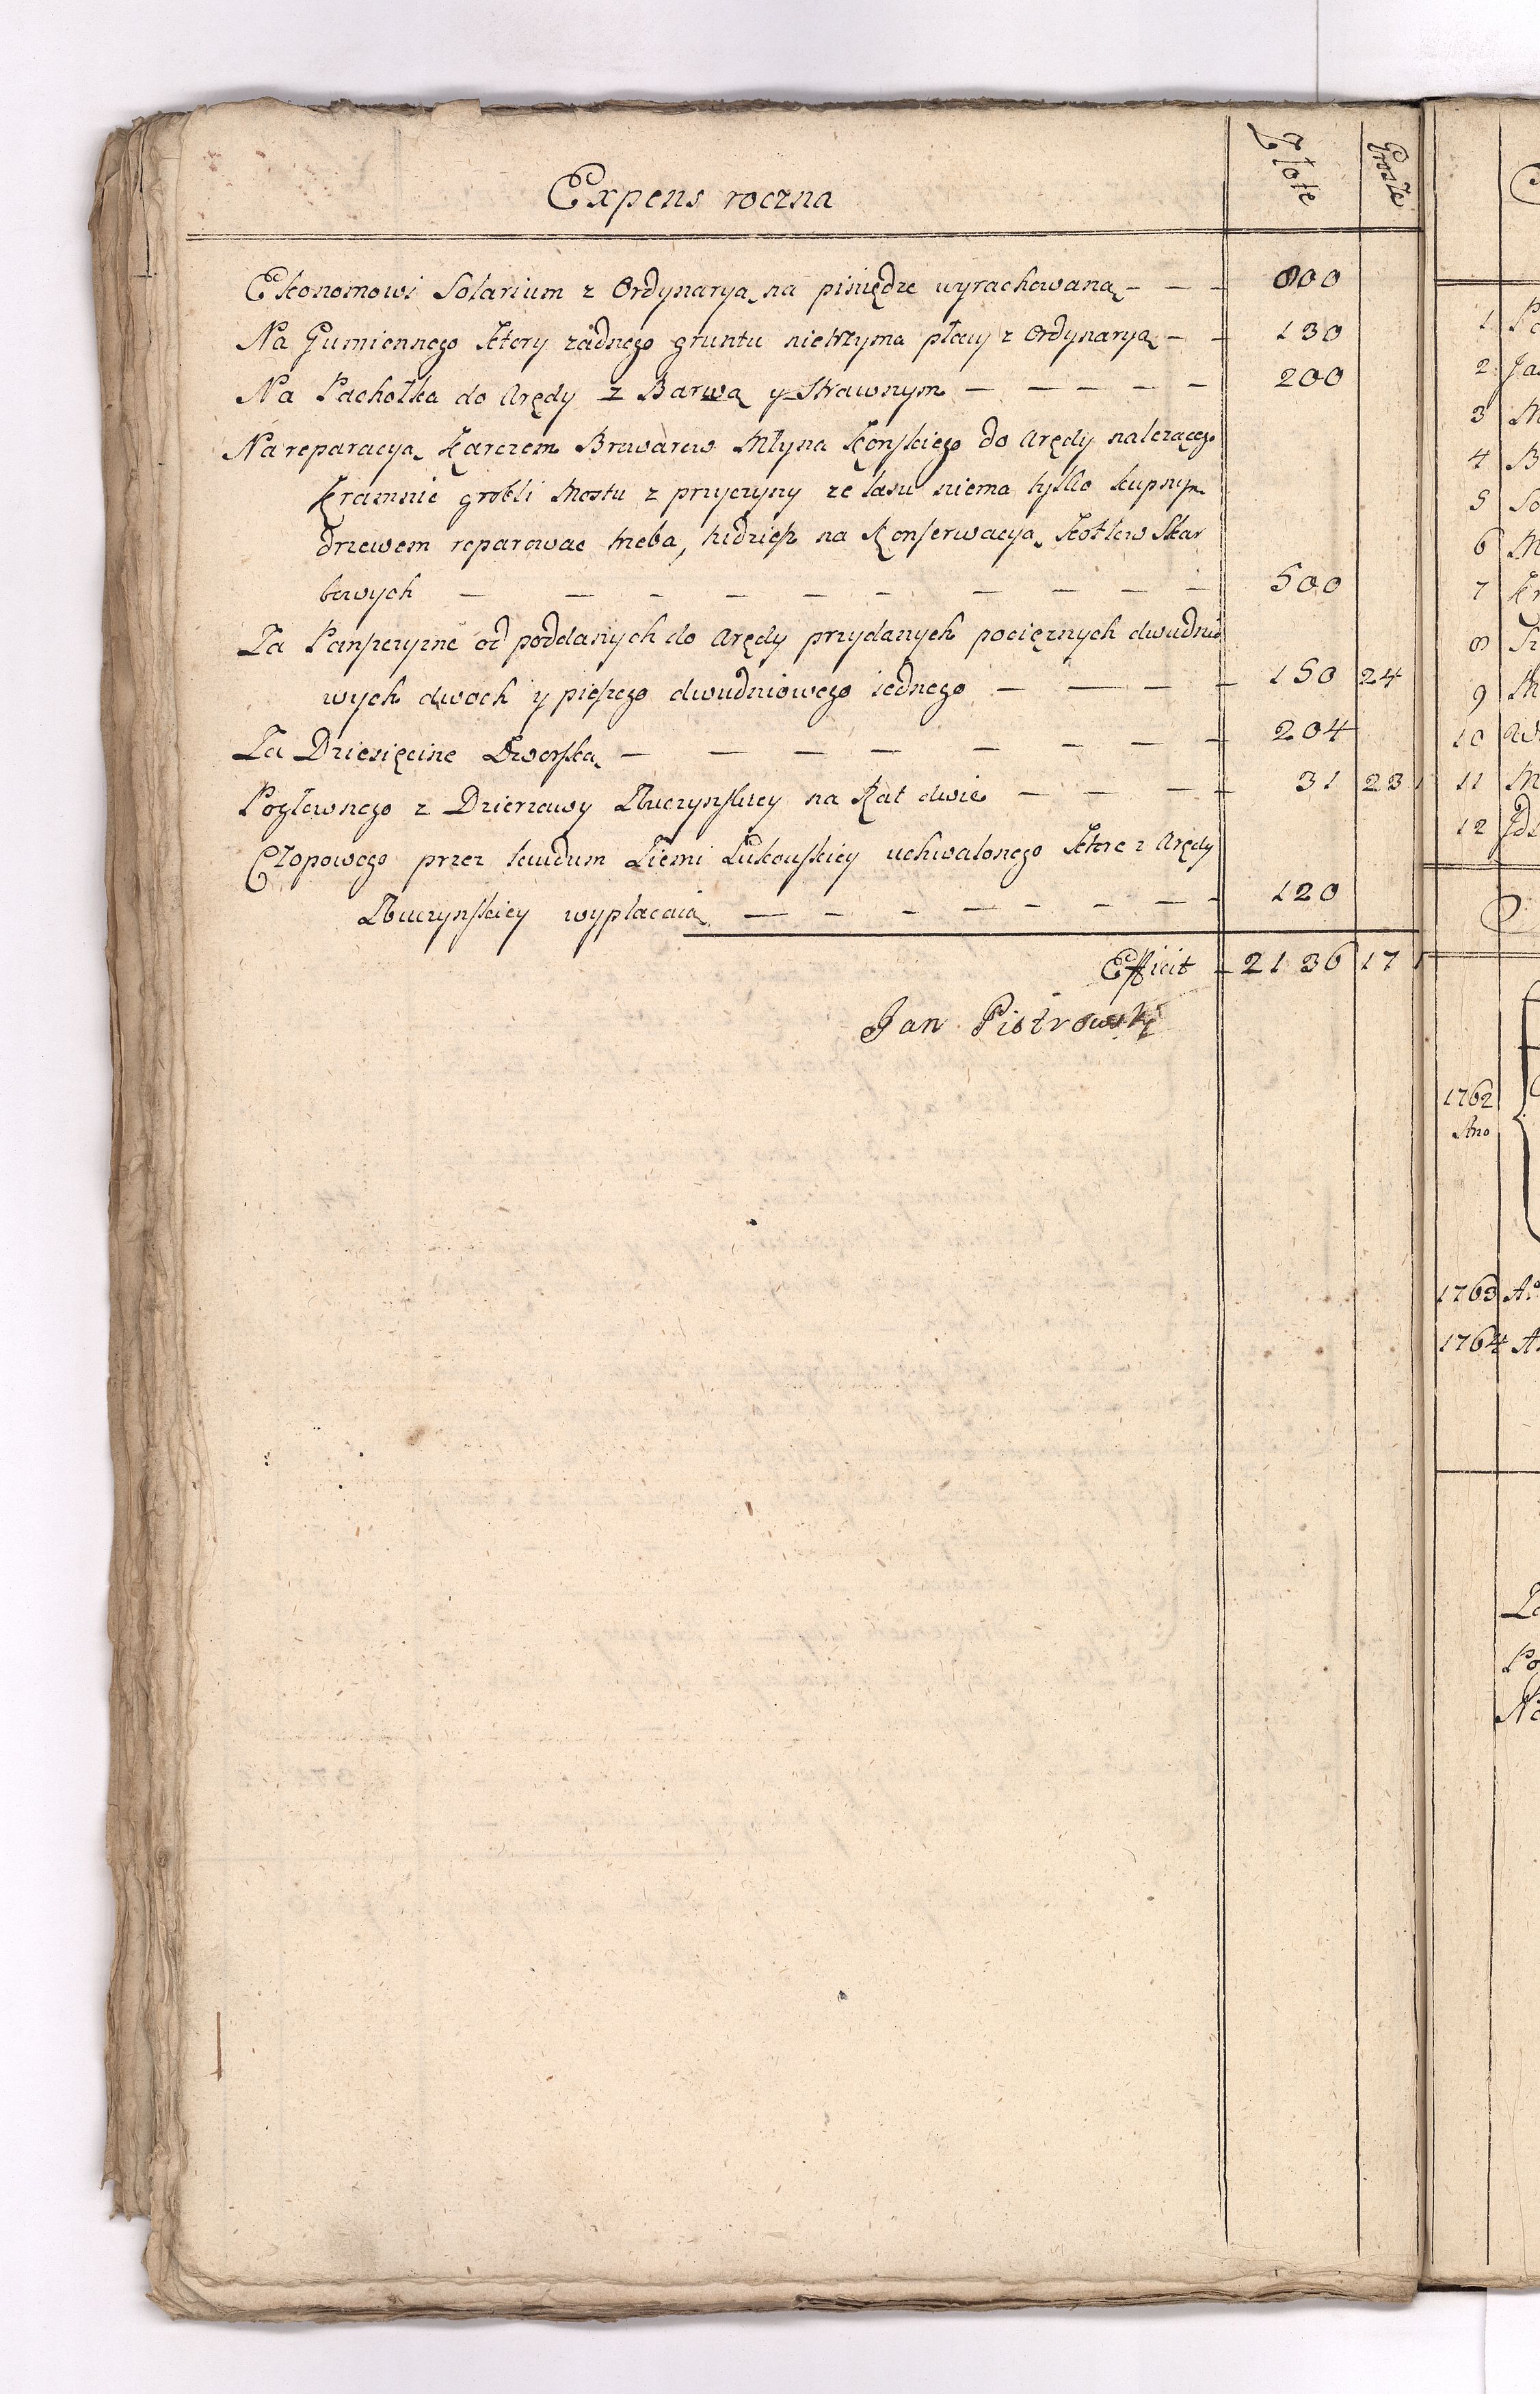 Expens roczna
Złote
Grosze
Ekonomowi Solarium z Ordynaryą na piniędze wyrachowaną 800
Na Gumiennego ktory zadnego gruntu nietrzyma płacy z Ordynaryą 130
Na Pachołka do Arędy z Barwą y Strawnym 200
Na reparacyą Karczem Browarow Młyna Konskiego do Arędy nalezącego
Kramnic grobli Mostu z przyczyny ze lasu niema tylko kupnym
drzewem reparowac trzeba, tudziesz na Konserwacyą Kotłow Skar
bowych 500
Za Panszczyzne od poddanych do Arędy przydanych pocięznych dwudnio
wych dwoch y pieszego dwudniowego iednego 150 24
Za Dziesięcine Dworską 204
Pogłownego z Dzierzawy Zbuczynskiey na Rat dwie 31 23
Czopowego przez laudum Ziemi Łukowskiey uchwalonego ktore z Arędy
Zbuczynskiey wypłacaią 120
Efficit 2136 17
Jan Piotrowski
1
2 Ja
3
4
5 So
6
7
8
9
10
11
12
1762
Ano
1763
1764
Za
Po
Na